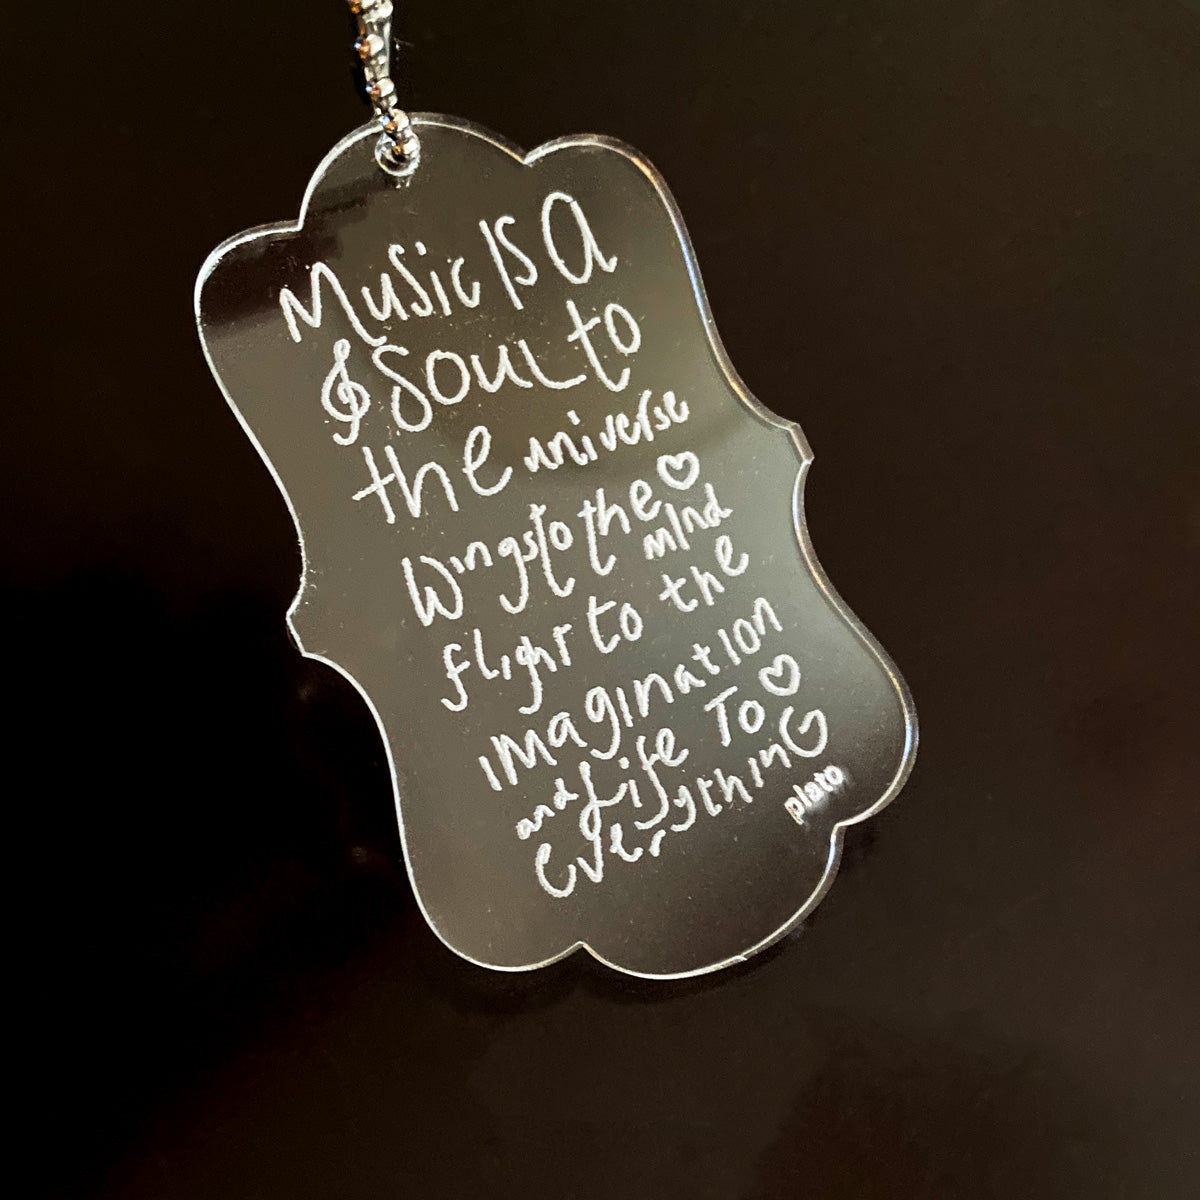 Music Is A
Soul to
the universe
Wings to the
mind
flight to the
imagination
and Life To
everythinG
plato